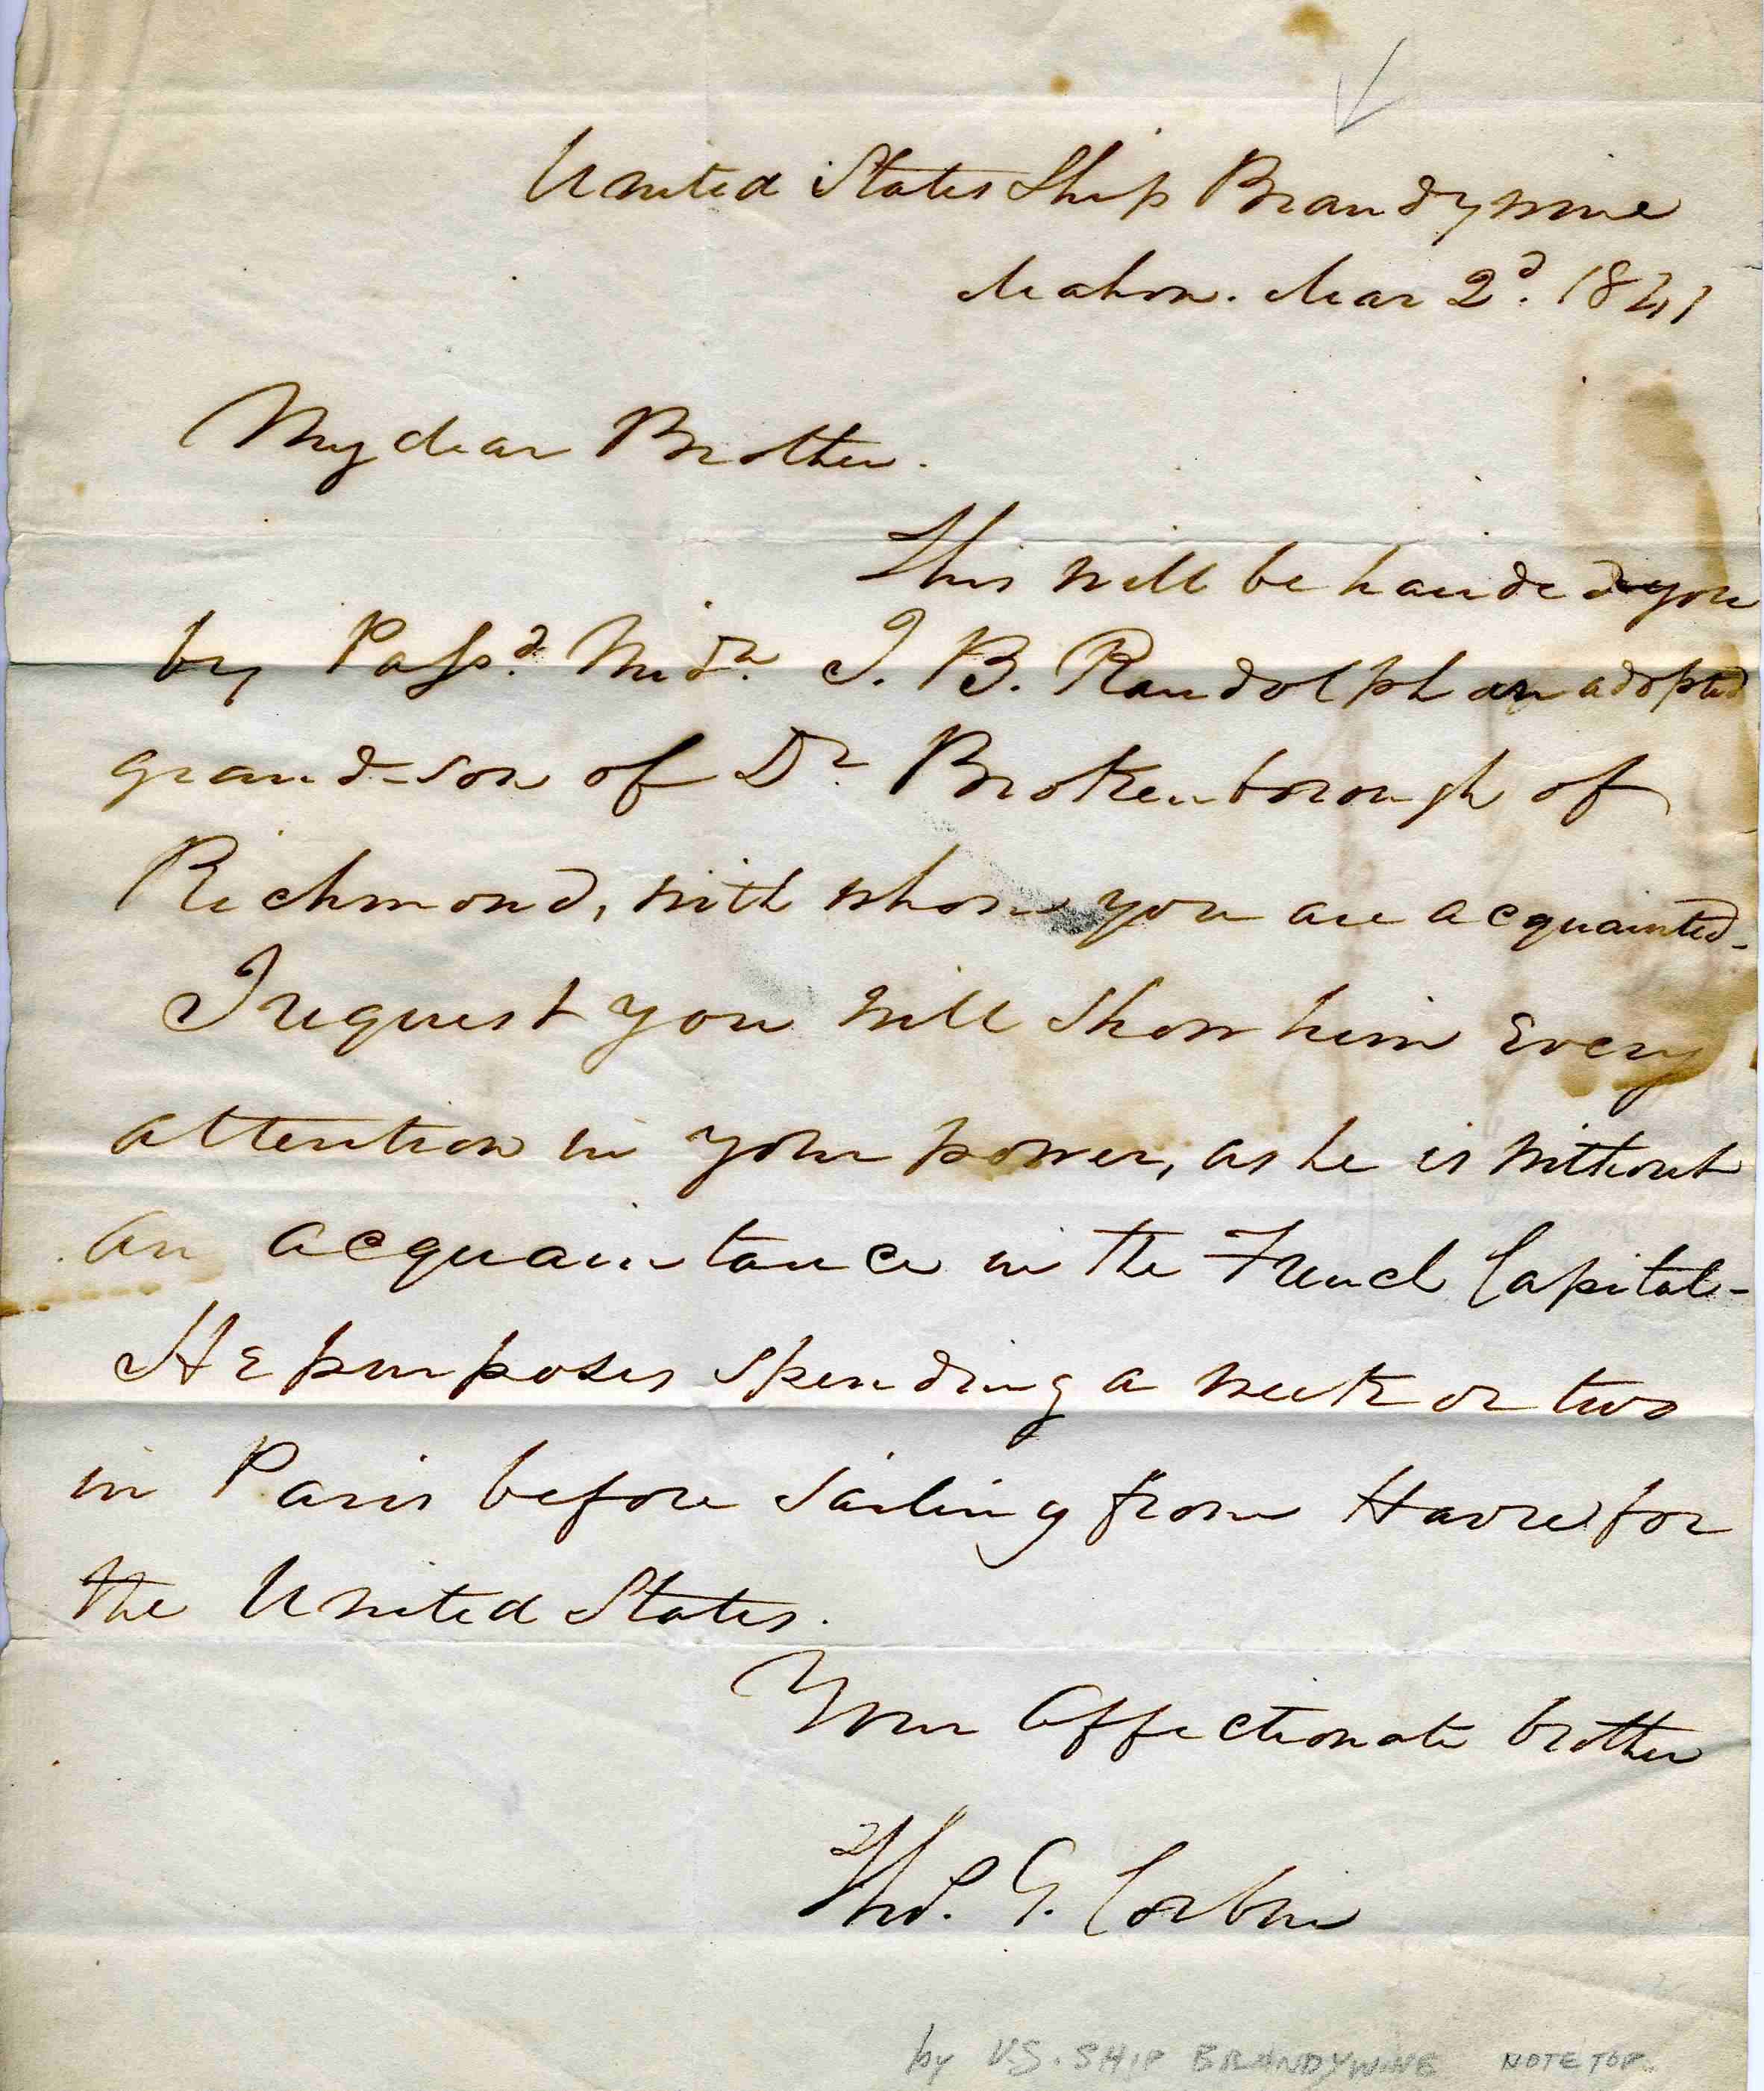 United States Ship Brandywine
Mahon. Mar 2d. 1841
My dear Brother.
This will be handed you
by Passd. Midn. J. B. Randolph an adopted
grand-son of Dr. Brokenborough of
Richmond, with whom you are acquainted-
I request you will show him every
attention in your power, as he is without
an acquaintance in the French Capital-
He purposes spending a week or two
in Paris before sailing from Havre for
the United States.
Your affectionate brother
Thos. G. Corbin
by US. SHIP BRANDYWINE NOTE TOP.